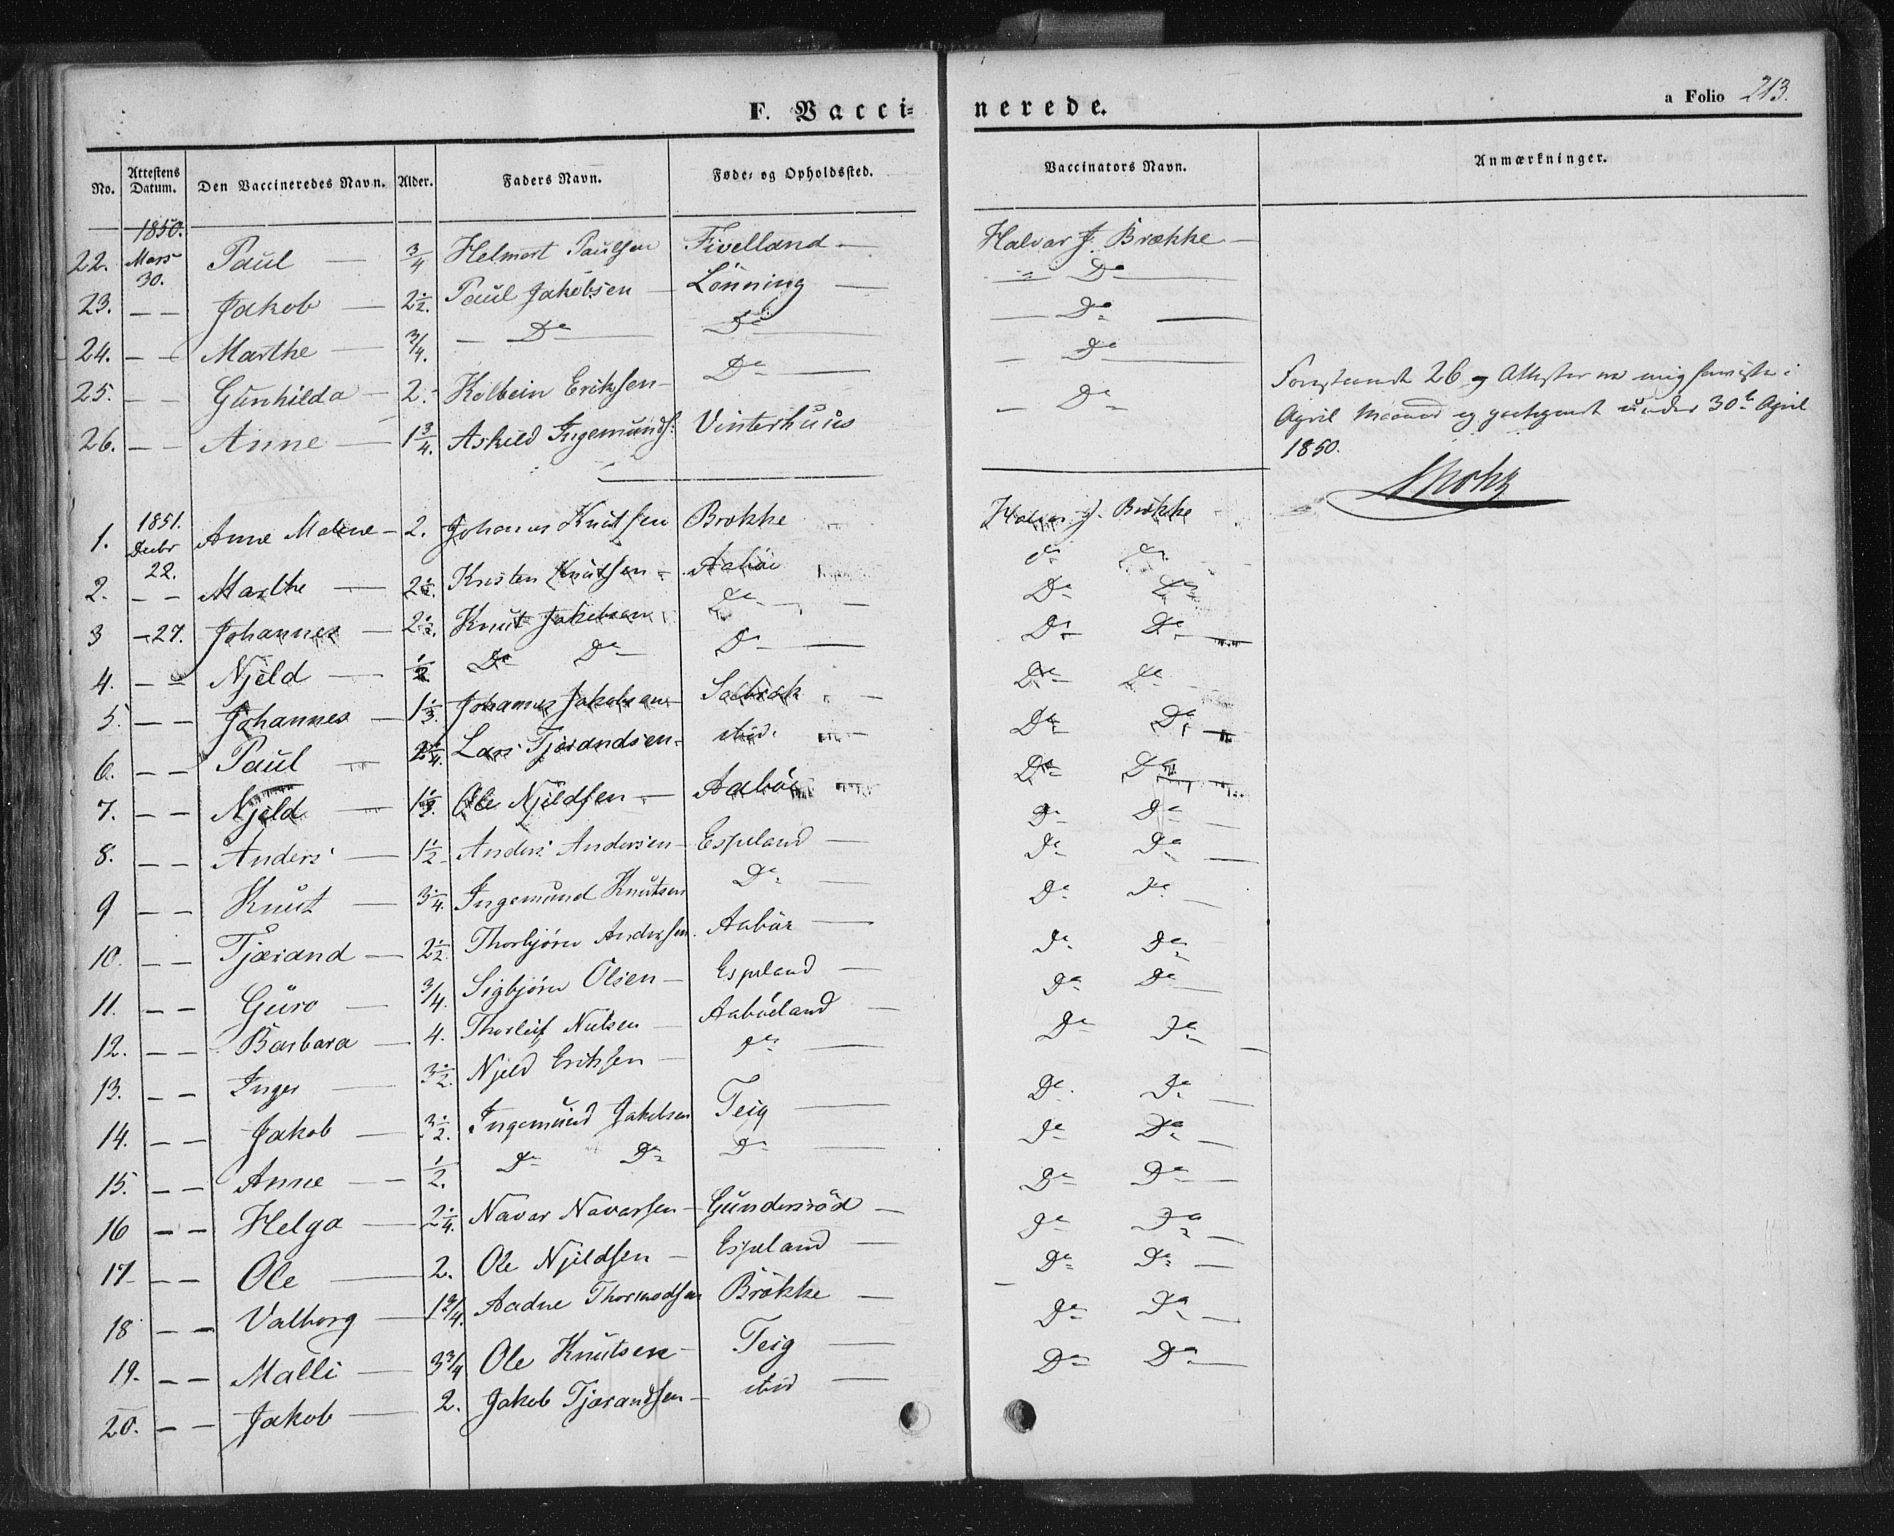 F. Vaccinerede. a Folio 213.
No. Attestens Datum. Den Vaccineredes Navn. Alder. Faders Navn. Føde- og Opholdssted. Vaccinators Navn. Anmærkninger.
1850.
22. Mars 30. Paul — 3/4 Helmert Paulsen Fivelland — Halvar J. Brække —
23. — — Jakob — 2 1/2. Paul Jakobsen — Lönning — " Do
24. — — Marthe — 3/4. — Do — Do — — Do —
25. — — Gunhilda — 2. Kolbein Eriksen — Do — — Do —
26. — — Anne — 1 3/4. Askild Ingemunds: Vinterhuus — Do
26 Attester
April Maaned under 30te April
1850.
1851.
1. Decbr 22. Anne Malene — 2. Johannes Knutsen Brokke Halvor J. Brokke
2. — — Marthe — 2 Kristen Knutsen — Aaböe do do
3 — 27. Johannes — 2 1/2. Knut Jakobsen Do — Do Do
4. — — Njeld — 1/2 Do Do Do — Do Do —
5. — — Johannes — 1 1/3. Johannes Jakobsen — — Do Do
6. — — Paul — 2 1/4. Lars Tjerandsen — ibid. Do Do —
7. — — Njeld — 1 Ole Njeldsen — Aaböe Do Do
8. — — Anders — 1 1/2 Anders Andersen — Espeland — Do Do —
9 — — Knut — 3/4. Ingemund Knutsen Do — Do Do —
10. — — Tjærand — 2 1/2. Thorbjörn Andersen. Aaböe — Do Do —
11. — — Guro — 3/4. Sigbjörn Olsen — Espeland — Do Do
12. — — Barbara — 4. Thorleif Nielsen — Aaböeland — Do Do —
13. — — Inger — 3 1/2. Njeld Eriksen — do — Do Do —
14. — — Jakob — 3 1/2. Ingemund Jakobsen Teig — Do Do —
15. — — Anne — 1/2. Do Do Do — Do Do —
16 — — Helga — 2 1/4. Navar Navarsen — Gundersröd — Do Do —
17 — — Ole — 2. Ole Njeldsen — Espeland — Do Do —
18 — — Valborg — 1 3/4. Aadne Thormodsen Brökke — Do Do —
19. — — Malli — 3 3/4 Ole Knutsen — Teig — Do Do —
20. — — Jakob — 2. Jakob Tjærandsen — ibid — Do Do —